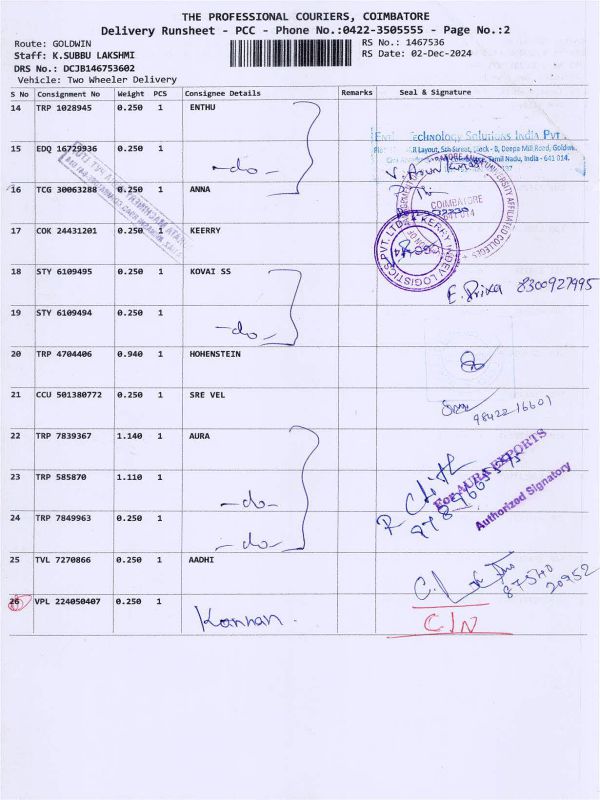 THE PROFESSIONAL COURIERS, COIMBATORE
Delivery Runsheet - PCC - Phone No.:0422-3505555 - Page No.:2
Route: GOLDWIN
RS No.: 1467536
Staff: K.SUBBU LAKSHMI
RS Date: 02-Dec-2024
DRS No.: DCJB146753602
Vehicle: Two Wheeler Delivery
S No Consignment No Weight PCS Consignee Details Remarks Seal & Signature
14 TRP 1028945 0.250 1 ENTHU
Technology Solutions India Pvt
Layout, 5th Street, Block - B, Deepa Mill Road, Goldwins
Tamil Nadu, India - 641 014.
15 EDQ 16729936 0.250 1
-do-
16 TCG 30063288 0.250 1 ANNA
UNIVERSITY AFFILIATED COLLEGES
COIMBATORE
641 014
17 COK 24431201 0.250 1 KEERRY
KERRY INDEV LOGISTICS PVT. LTD.
18 STY 6109495 0.250 1 KOVAI SS
E. Priya 8300927995
19 STY 6109494 0.250 1
-do-
20 TRP 4704406 0.940 1 HOHENSTEIN
21 CCU 501380772 0.250 1 SRE VEL
98422 16601
22 TRP 7839367 1.140 1 AURA
For AURA EXPORTS
Authorized Signatory
23 TRP 585870 1.110 1
-do-
24 TRP 7849963 0.250 1
-do-
25 TVL 7270866 0.250 1 AADHI
87540
20952
26 VPL 224050407 0.250 1
Kannan.
CIN